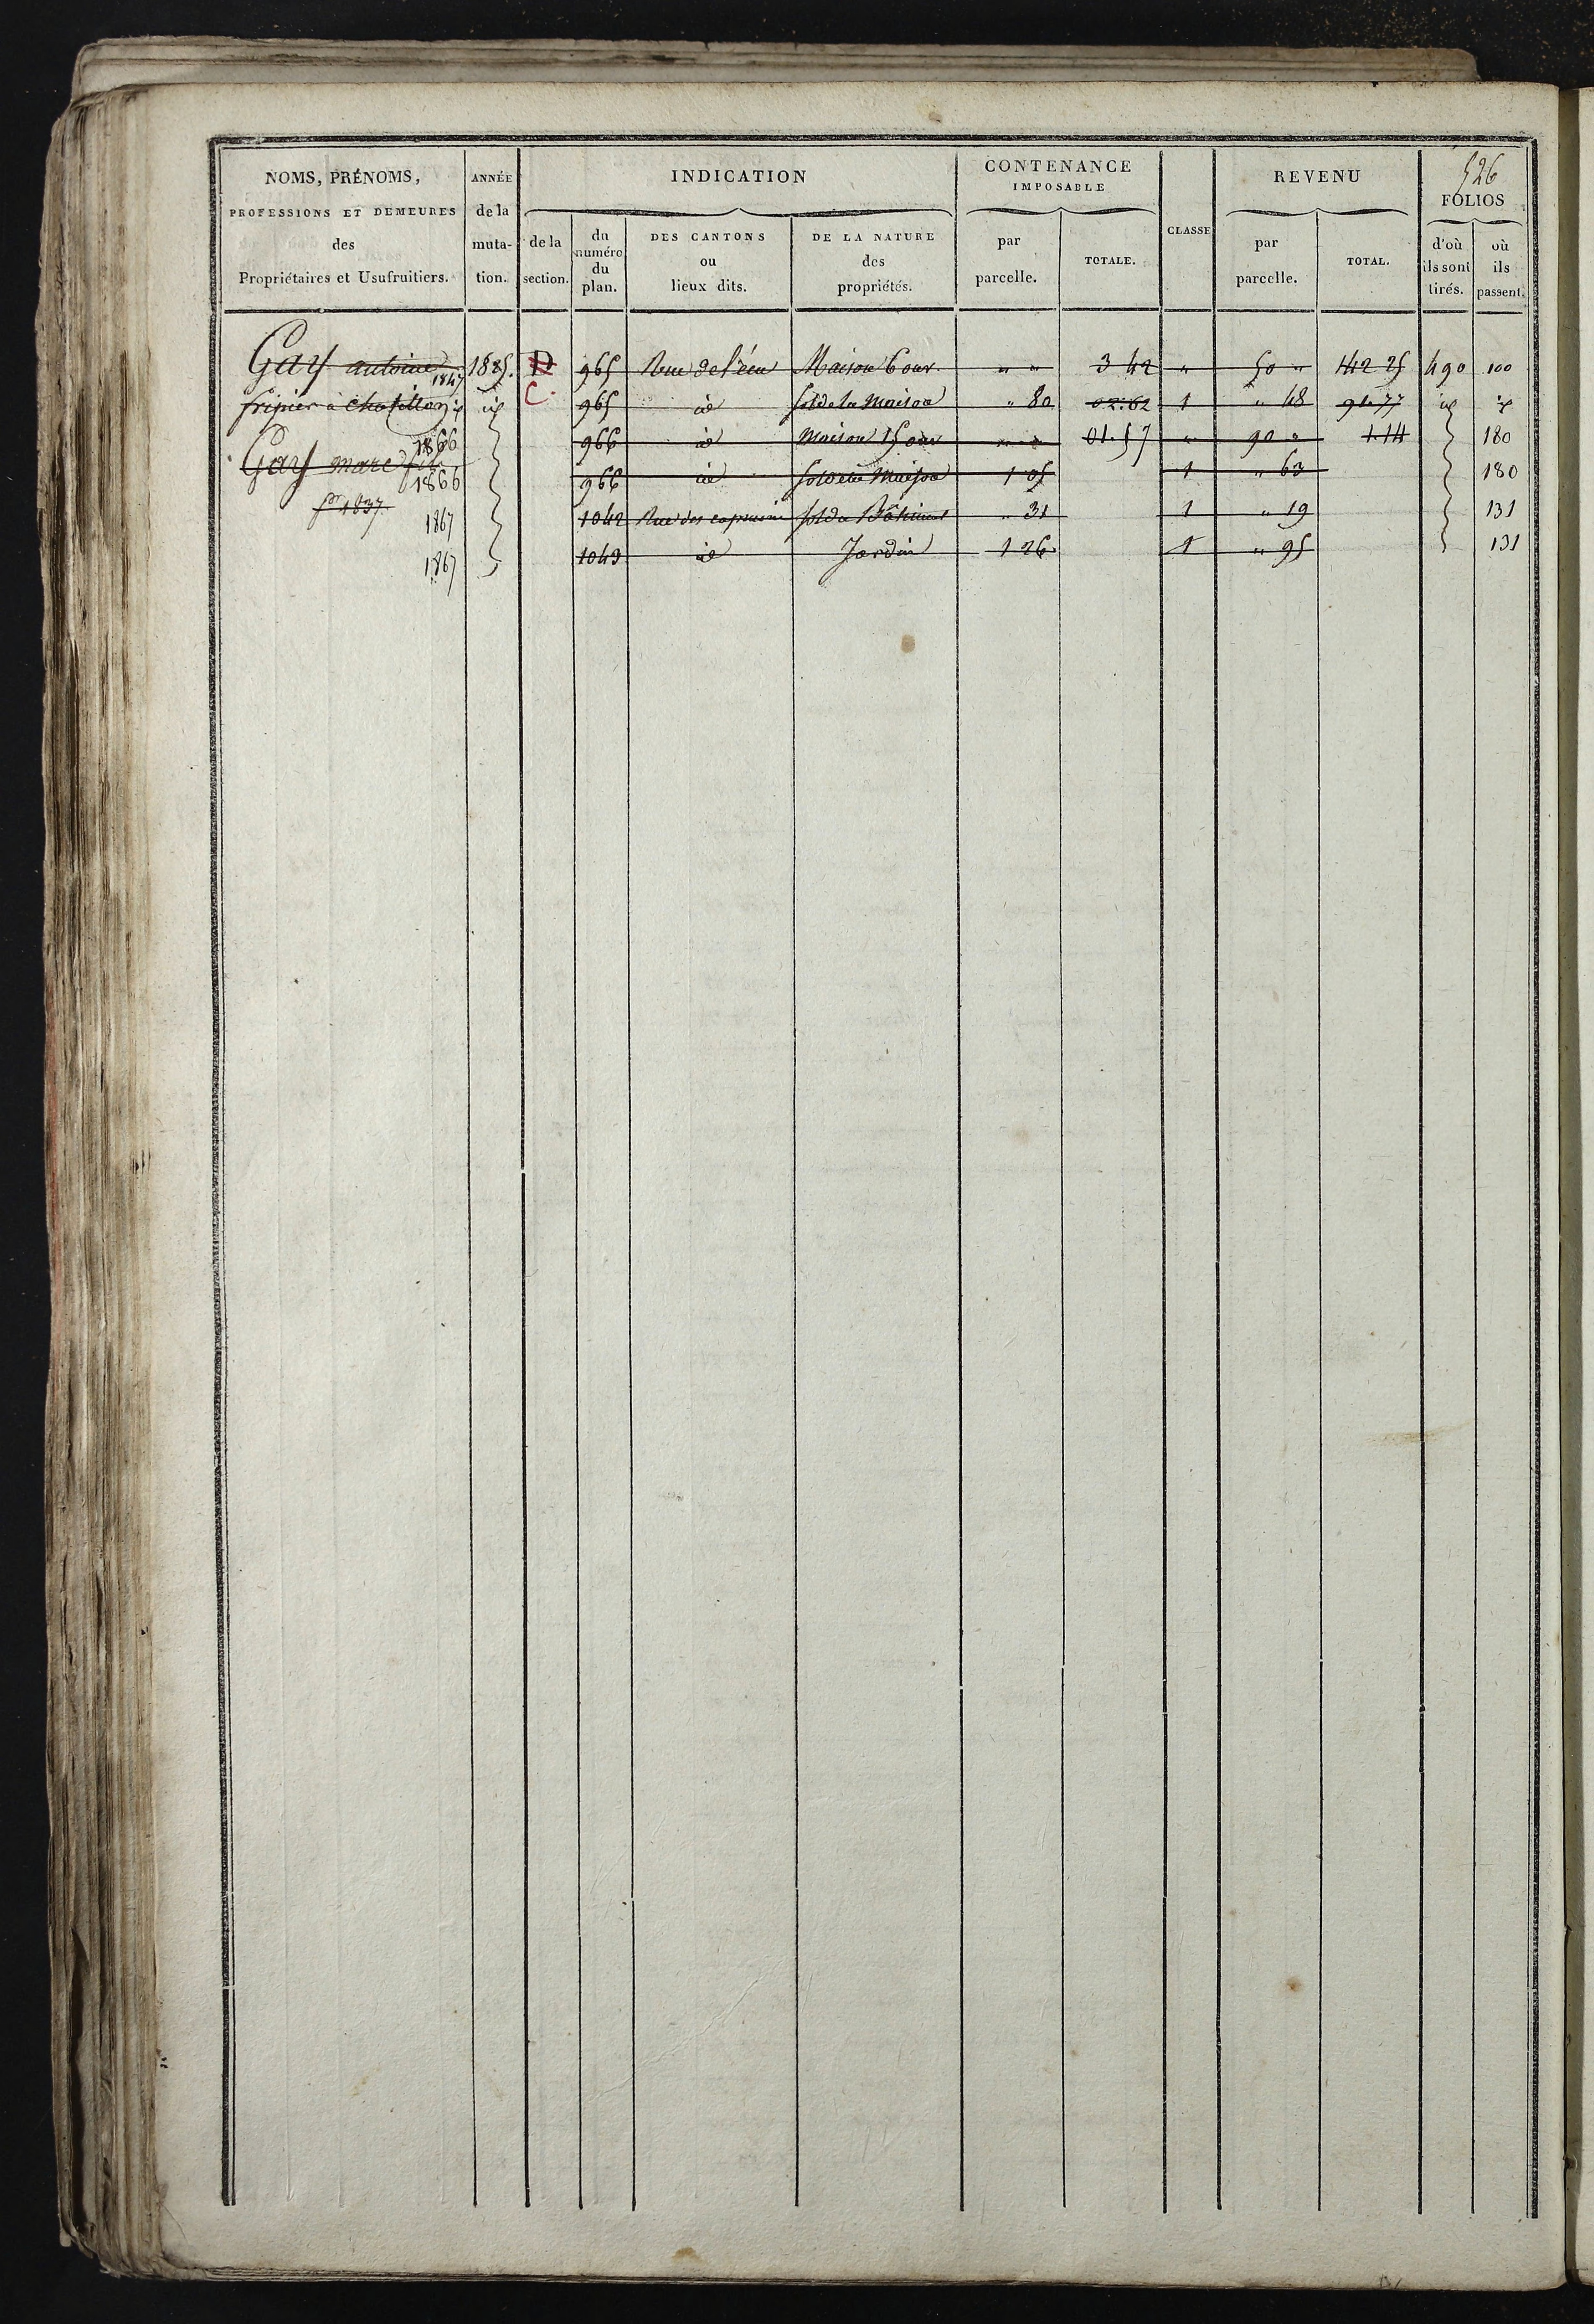 526
NOMS, PRÉNOMS, PROFESSIONS ET DEMEURES des Propriétaires et Usufruitiers.
ANNÉE de la muta- tion.
INDICATION
de la section.
du numéro du plan.
DES CANTONS ou lieux dits.
DE LA NATURE des propriétés.
CONTENANCE IMPOSABLE
par parcelle.
TOTALE.
CLASSE
REVENU
par parcelle.
TOTAL.
FOLIOS
d'où ils sont tirés.
où ils passent.
Gay antoine 1825. D 965 Rue de l'écu Maison 6 ouv. " " 3 42 " 50 " 142 25 490 100
1847
fripier à Chatillon id id C. 965 id sol de la Maison " 80 02.62 1 " 48 91.77 id id
1866 966 id Maison 15 ouv " " 01.57 " 90 " 1.14 180
Gay marc fils
1866 966 id sol de la Maison 1 05 1 " 63 180
pr 1837
1867 1042 Rue des capucins sol du Bâtiment " 31 1 " 19 131
1867 1043 id Jardin 1 26 1 " 95 131